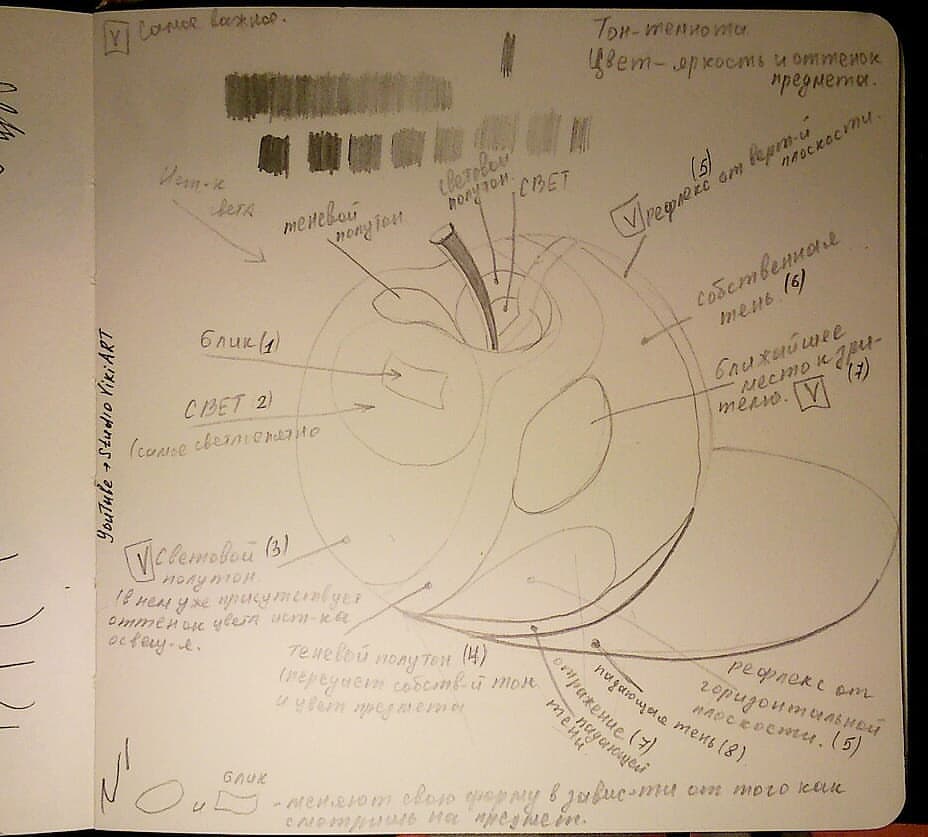 V Самое важное.
Тон-темнота
Цвет - яркость и оттенок
предмета.
Ист-к
света
теневой
полутон
световой
полутон.
СВЕТ
(5)
V рефлекс от верт-й
плоскости.
собственная
тень. (6)
ближайшее
место к зри-
телю. V (7)
блик (1)
СВЕТ (2)
(самое светлое пятно
YouTube → Studio VikiART
V Световой (3)
полутон.
(в нем уже присутствует
оттенок цвета ист-ка
освещ-я.
теневой полутон (4)
(передает собств-й тон
и цвет предмета
отражение (7)
падающей
тени
падающая тень (8)
рефлекс от
горизонтальной
плоскости. (5)
и блик - меняют свою форму в завис-ти от того как
смотришь на предмет.